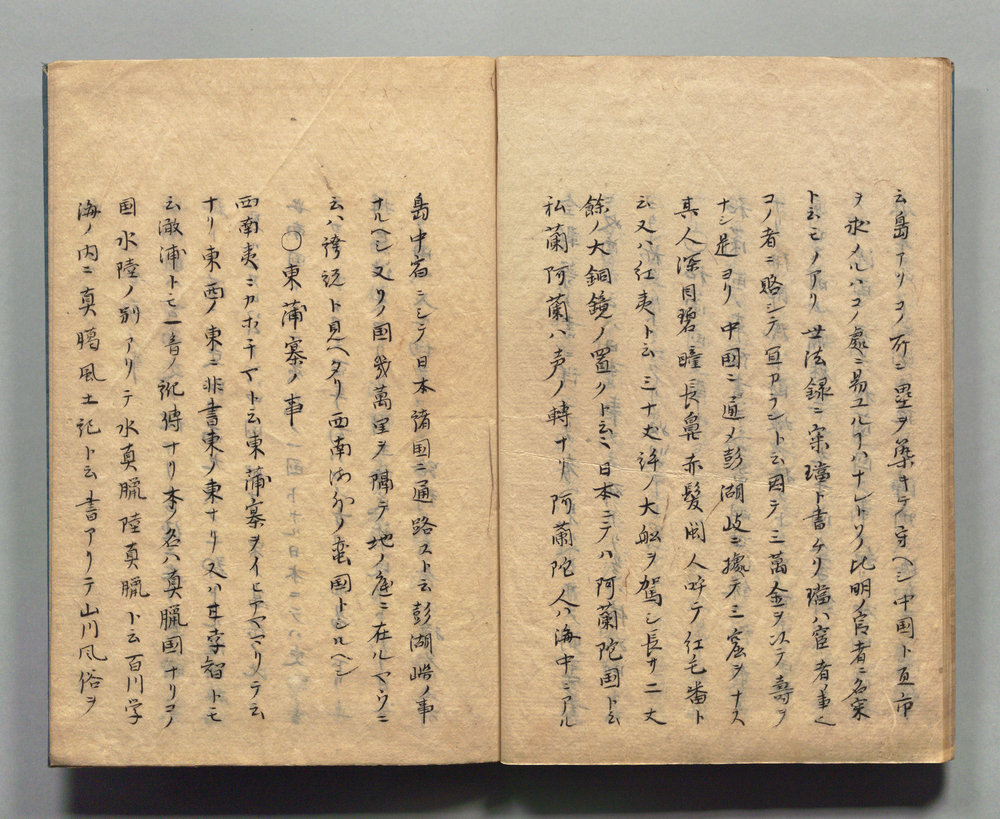 云島アリコノ所ニ塁ヲ築キテ守ヘシ中国ト互市
ヲ求メルハコノ處ニ易ユルヿハナシトソ此明ノ官者ニ名寀
ト云モノアリ世法録ニ寀璫ト書ケリ璫ハ宦者ノ事也
コノ者ニ賂シテ互市ラント云因テ三萬金ヲ以テ壽ヲ
ナシ是ヨリ中国ニ通メ彭湖岐ニ據テ三窟ヲナス
其人深目碧瞳長鼻赤髪閩人呼テ紅毛畨ト
云又ハ紅夷ト云三十丈許ノ大舩ヲ駕シ長サ二丈
餘ノ大銅鏡ノ置クト云ミ日本ニテハ阿蘭陀国ト云
和蘭阿蘭ハ声ノ轉ナリ阿蘭陀人ハ海中ニアル
島中宿ニシテ日本諸国ニ通路スト云彭湖嶼ノ事
ナルヘシ又ソノ国幾萬里ヲ隔テ地ノ底ニ在ルヤウニ
云ハ誇説ト見ヘタリ西南海外ノ蛮国トシルヘシ
〇東蒲寨ノ事
西南夷ニカホチヤト云東蒲寨ヲイヒアヤマリテ云
ナリ東西ノ東ニ非書東ノ東ナリ又ハ甘孛智トモ
云澉浦トモ一音ノ訛傳ナリ本ノ名ハ真臘国ナリコノ
国水陸ノ別アリテ水真臘陸真臘ト云百川学
海ノ内ニ真臈風土記ト云書アリテ山川風俗ヲ